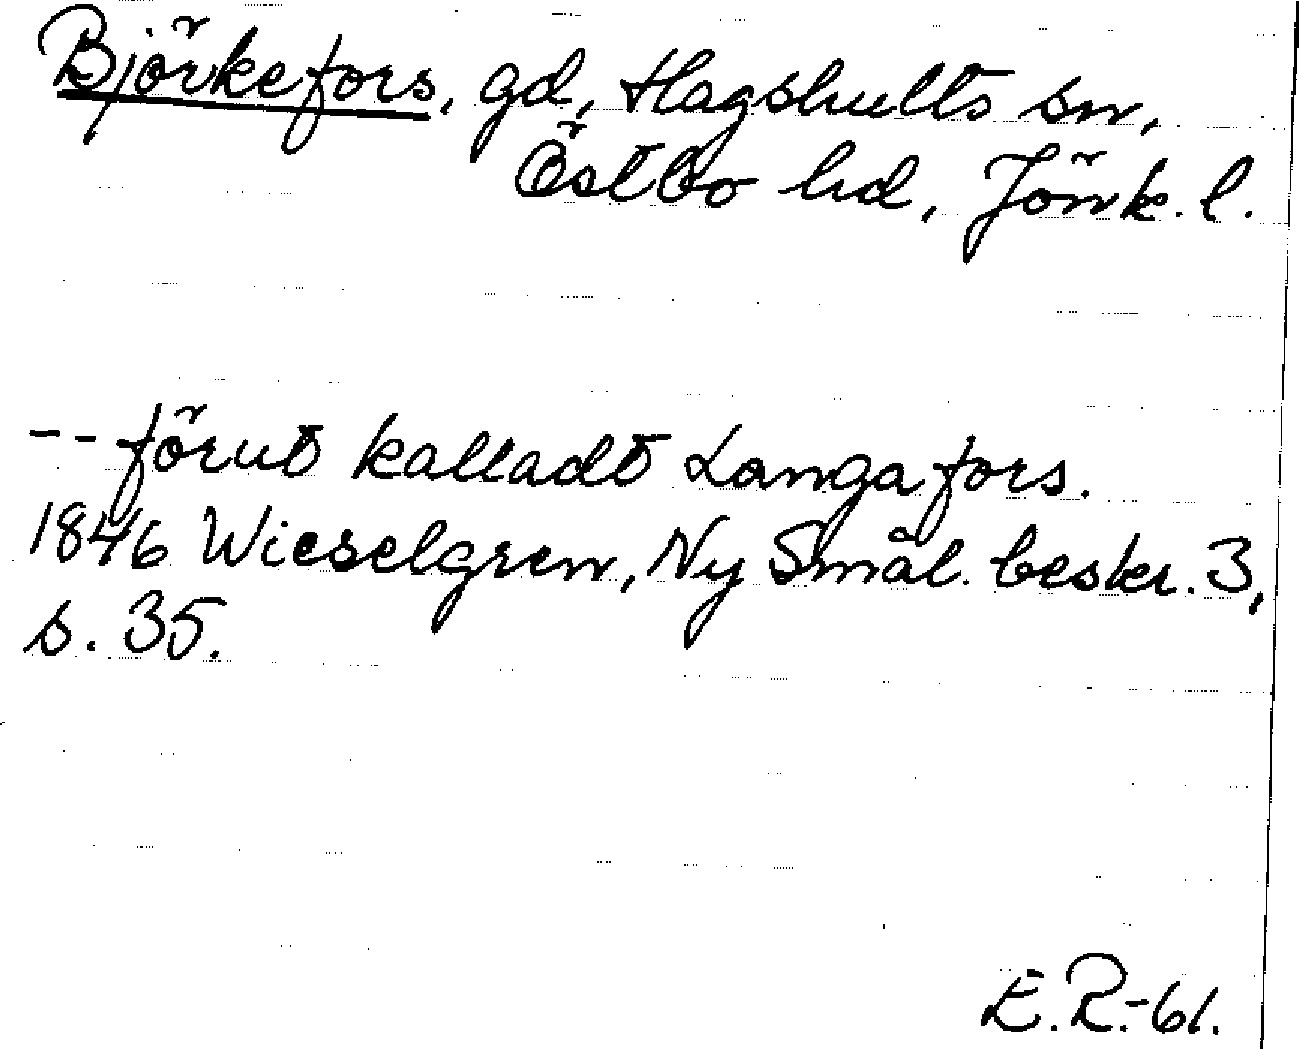 Björkefors, gd, Hagshults sn,
Östbo hd, Jönk. l.
-- förut kalladt Langafors.
1846 Wieselgren, Ny Smål. beskr. 3,
s. 35.
E.R.-61.